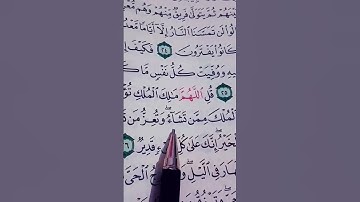 مِّنْهُمْ ثُمَّ يَتَوَلَّىٰ فَرِيقٌ مِّنْهُمْ وَهُم مُّعْ
لُوا۟ لَن تَمَسَّنَا ٱلنَّارُ إِلَّآ أَيَّامًا مَّعْدُ
كَانُوا۟ يَفْتَرُونَ ٢٤ فَكَيْفَ إِ
فِيهِ وَوُفِّيَتْ كُلُّ نَفْسٍ مَّا كَ
٢٥ قُلِ ٱللَّهُمَّ مَٰلِكَ ٱلْمُلْكِ تُؤْ
ٱلْمُلْكَ مِمَّن تَشَآءُ وَتُعِزُّ مَن تَ
لْخَيْرُ إِنَّكَ عَلَىٰ كُلِّ ءٍ قَدِيرٌ
هَارَ فِى ٱلَّيْلِ ٱلْحَىَّ